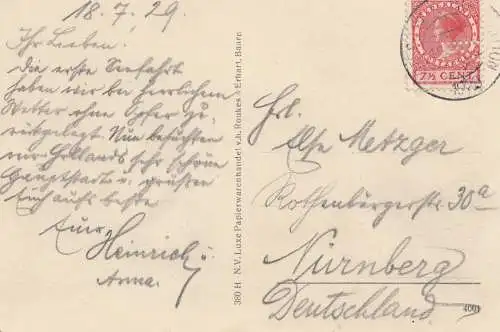 18.7.29.
Ihr Lieben.
Die erste Seefahrt
haben wir bei herrlichem
Wetter ohne Opfer zu-
rückgelegt. Nun besuchten
wir Hollands sehr schöne
Hauptstadt u. grüßen
Euch aufs beste
Eure
Heinrich u.
Anna.
380 H N.V. Luxe Papierwarenhandel v.h. Roukes & Erhart, Baarn
NEDERLAND
7½ CENT
Frl.
Ilse Metzger
Rothenburgerstr. 30a
Nürnberg
Deutschland
4001